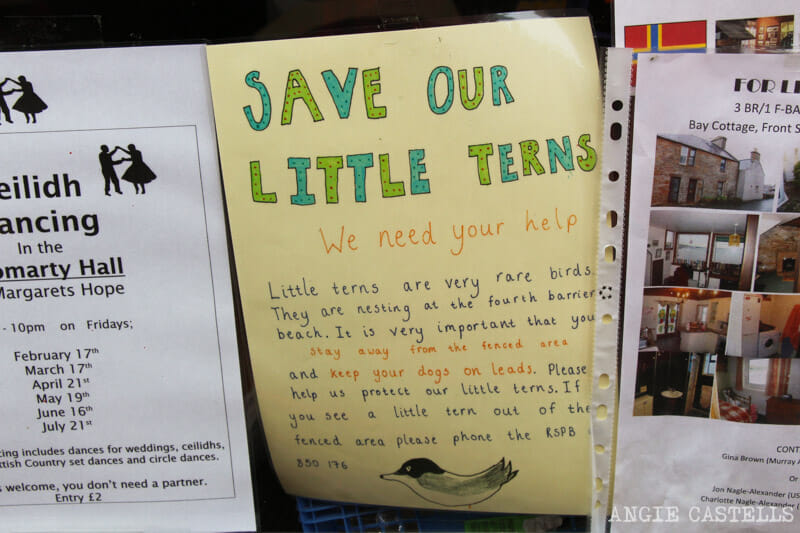 eilidh
ancing
In the
omarty Hall
Margarets Hope
- 10pm on Fridays;
February 17th
March 17th
April 21st
May 19th
June 16th
July 21st
ing includes dances for weddings, ceilidhs,
ttish Country set dances and circle dances.
s welcome, you don't need a partner.
Entry £2
SAVE OUR
LITTLE TERNS
We need your help
Little terns are very rare birds.
They are nesting at the fourth barrier
beach. It is very important that you
stay away from the fenced area
and keep your dogs on leads. Please
help us protect our little terns. If
you see a little tern out of the
fenced area please phone the RSPB
850 176
FOR L
3 BR/1 F-BA
Bay Cottage, Front S
CONT
Gina Brown (Murray A
Or
Jon Nagle-Alexander (US
Charlotte Nagle-Alexander (
ANGIE CASTELLS